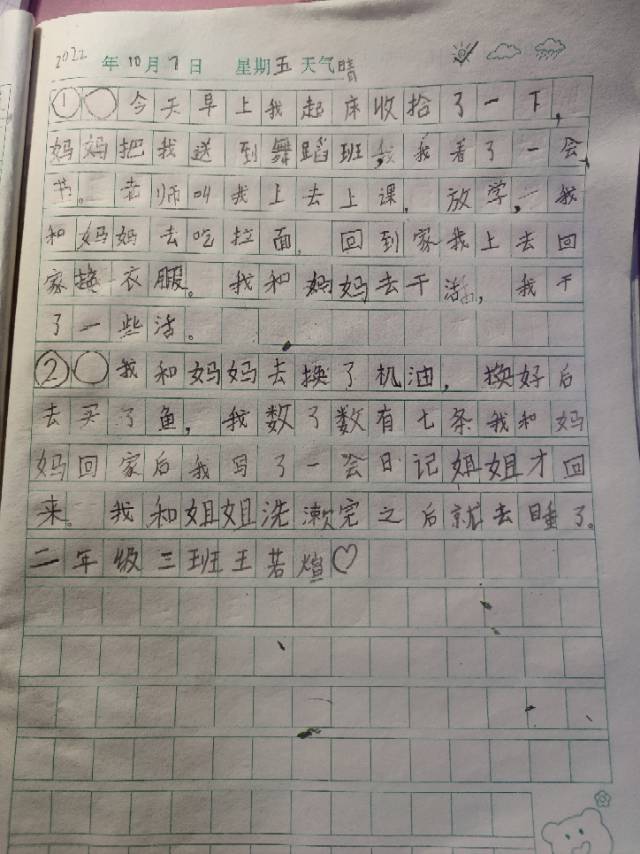 2022 年 10 月 7 日 星期五 天气晴
① 今天早上我起床收拾了一下，
妈妈把我送到舞蹈班，我看了一会
书。老师叫我上去上课，放学，我
和妈妈去吃拉面，回到家我上去回
家换衣服。我和妈妈去干活，我干
了一些活。
② 我和妈妈去换了机油，换好后
去买了鱼，我数了数有七条我和妈
妈回家后我写了一会日记姐姐才回
来。我和姐姐洗漱完之后就去睡了。
二年级三班王若煊♡